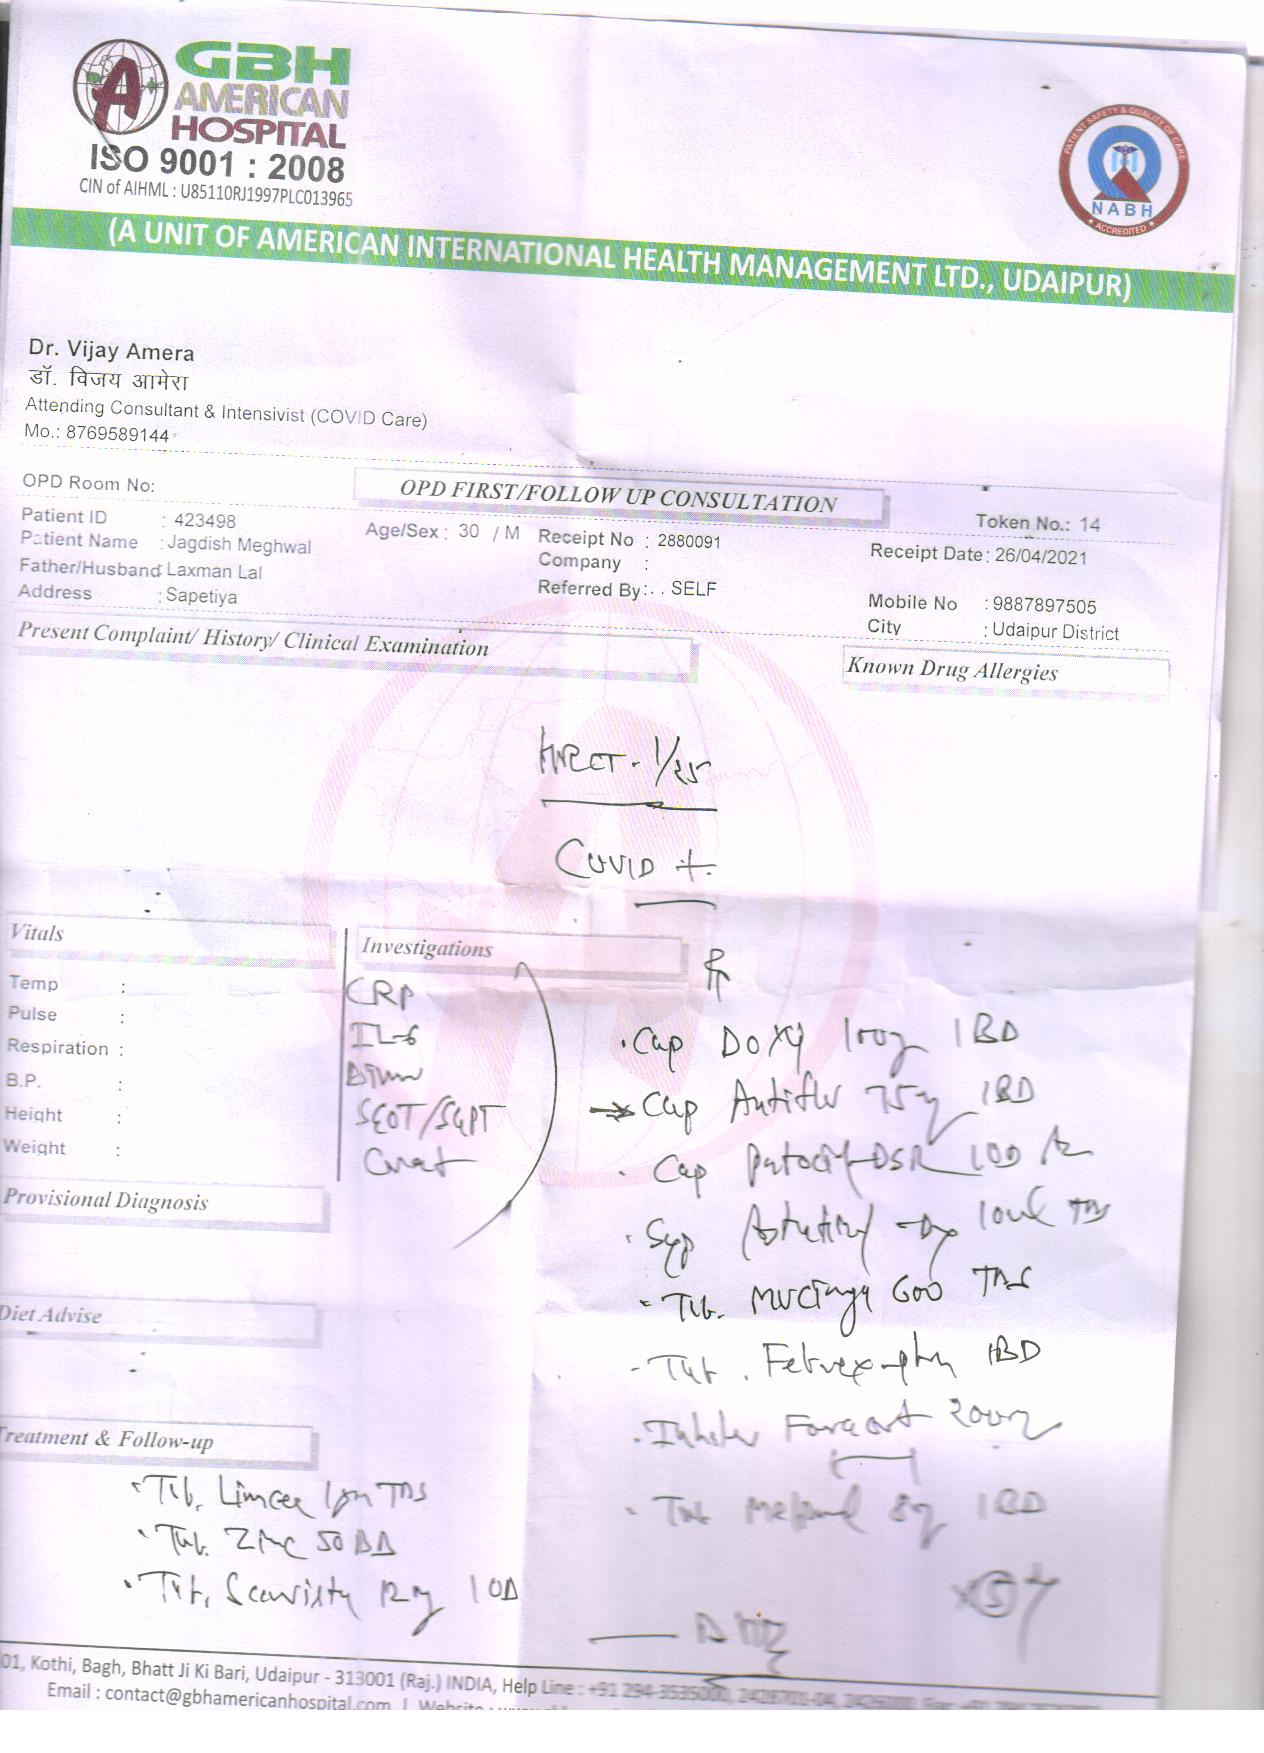 GBH
AMERICAN
HOSPITAL
ISO 9001 : 2008
CIN of AIHML : U85110RJ1997PLC013965
PATIENT SAFETY & QUALITY OF CARE
NABH
ACCREDITED
(A UNIT OF AMERICAN INTERNATIONAL HEALTH MANAGEMENT LTD., UDAIPUR)
Dr. Vijay Amera
डॉ. विजय आमेरा
Attending Consultant & Intensivist (COVID Care)
Mo.: 8769589144
OPD Room No:
OPD FIRST/FOLLOW UP CONSULTATION
Token No.: 14
Patient ID : 423498
Age/Sex : 30 / M
Receipt No : 2880091
Receipt Date: 26/04/2021
Patient Name : Jagdish Meghwal
Company :
Father/Husband: Laxman Lal
Referred By: . . SELF
Mobile No : 9887897505
Address : Sapetiya
City : Udaipur District
Present Complaint/ History/ Clinical Examination
Known Drug Allergies
HRCT - 1/25
COVID +
Vitals
Investigations
Temp :
Pulse :
Respiration :
B.P. :
Height :
Weight :
CRP
IL-6
SGOT/SGPT
Creat
Provisional Diagnosis
Diet Advise
Treatment & Follow-up
Cap Doxy 100mg 1BD
Cap Antiflu 75mg 1BD
Cap DSR 1OD
Syp 10ml TDS
Tab. 600 TDS
Tab. 1BD
Inhaler Foracort 200mg
Tab 8mg 1BD
x 5
Tab. Limcee 1gm TDS
Tab. Zinc 50 BD
Tab. 12mg 1OD
01, Kothi, Bagh, Bhatt Ji Ki Bari, Udaipur - 313001 (Raj.) INDIA, Help Line : +91 294-3535000,
Email : contact@gbhamericanhospital.com | Website :